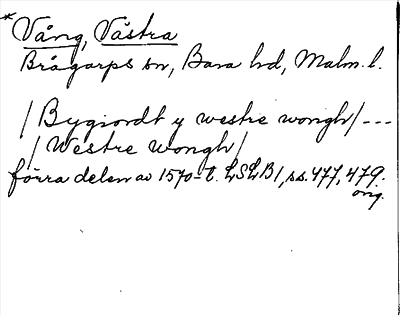 * Vång, Västra
Brågarps sn, Bara hd, Malm. l.
/Bygiordt y westre wongh/---
/Westre wongh/
förra delen av 1570-t. LSLB1, ss. 477, 479.
orig.